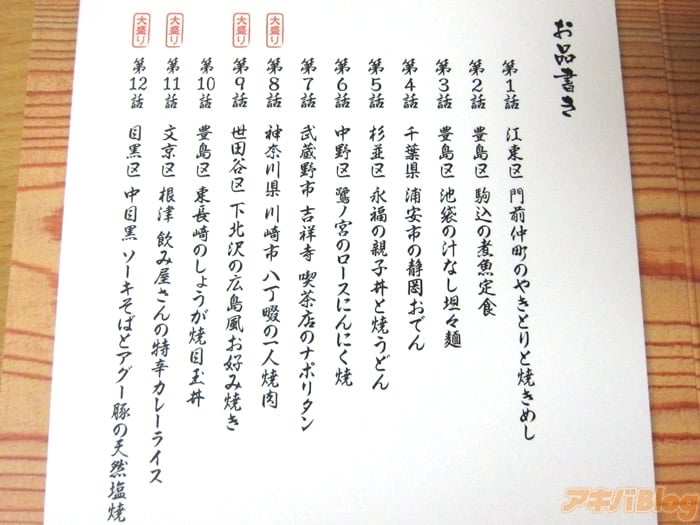 お品書き
第1話 江東区 門前仲町のやきとりと焼きめし
第2話 豊島区 駒込の煮魚定食
第3話 豊島区 池袋の汁なし坦々麺
第4話 千葉県 浦安市の静岡おでん
第5話 杉並区 永福の親子丼と焼うどん
第6話 中野区 鷺ノ宮のロースにんにく焼
第7話 武蔵野市 吉祥寺 喫茶店のナポリタン
大盛り 第8話 神奈川県 川崎市 八丁畷の一人焼肉
大盛り 第9話 世田谷区 下北沢の広島風お好み焼き
第10話 豊島区 東長崎のしょうが焼目玉丼
大盛り 第11話 文京区 根津 飲み屋さんの特辛カレーライス
大盛り 第12話 目黒区 中目黒 ソーキそばとアグー豚の天然塩焼
アキバBlog